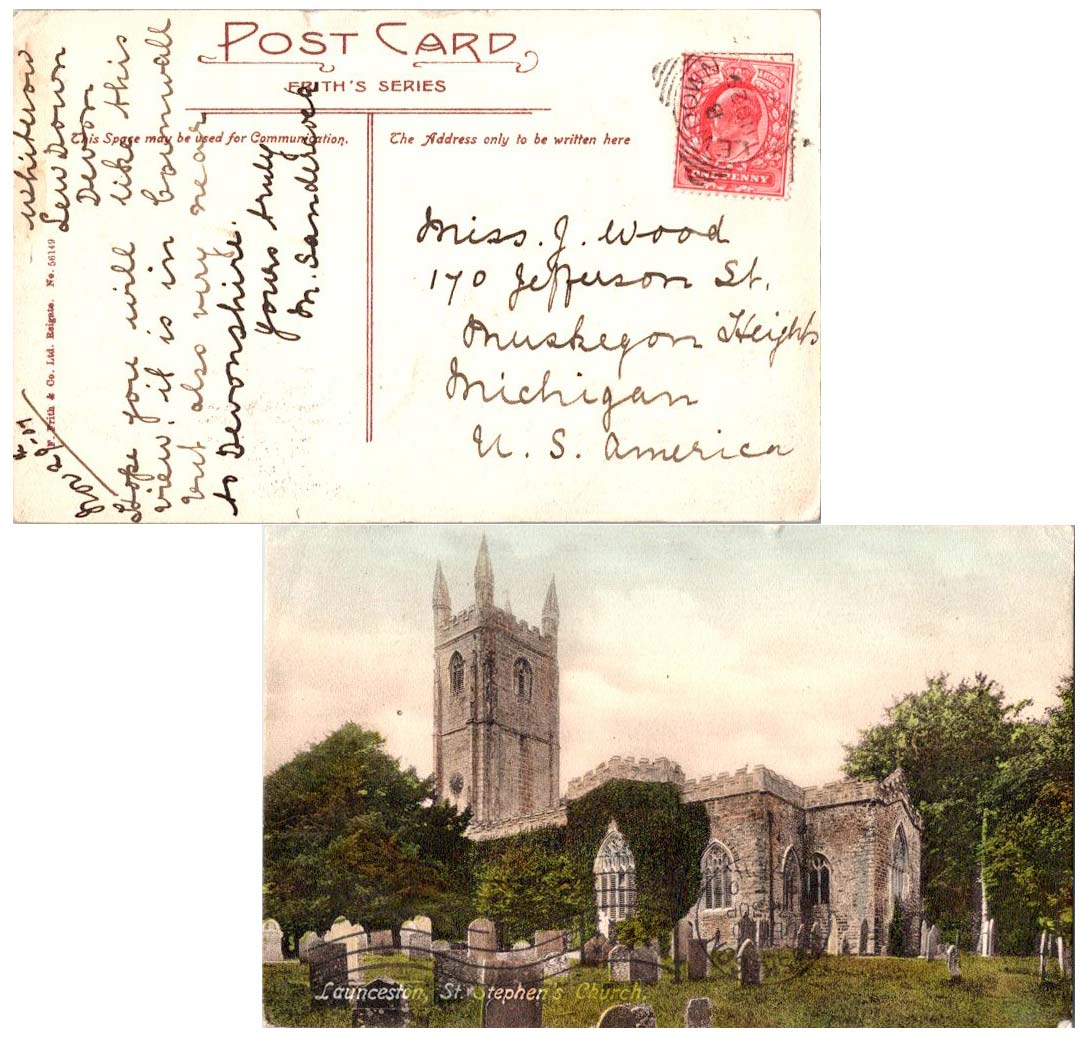 POST CARD
FRITH'S SERIES
This Space may be used for Communication.
The Address only to be written here
Whiterow
Lew Down
Devon
Hope you will like this
view. it is in Cornwall
but also very near
to Devonshire.
yours truly
M. Sanderock
F. Frith & Co. Ltd. Reigate. No. 56149
Miss. J. Wood
170 Jefferson St.
Muskegon Heights
Michigan
U. S. America
DOWN
ONE PENNY
Launceston, St. Stephen's Church.